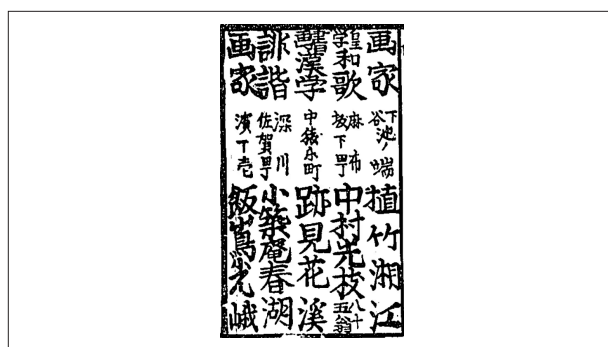 画家 下谷池ノ端 植竹湘江
皇学和歌 麻布坂下町 中村光枝 八十五翁
書画漢学 中猿楽町 跡見花渓
誹諧 深川佐賀町 小築庵春湖
画家 濱丁壱 飯島光峨